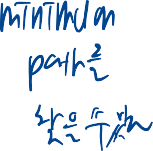 minimum
path를
찾을 수 있는